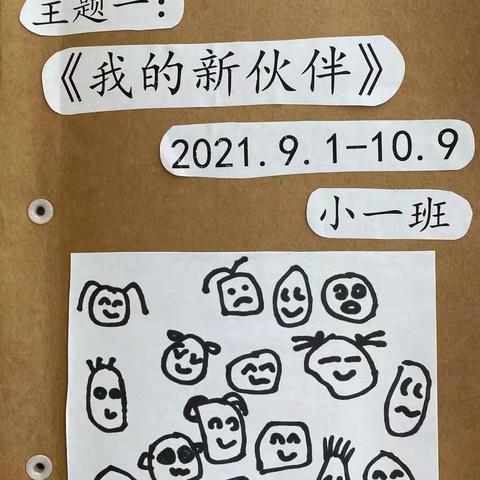 主题一：
《我的新伙伴》
2021.9.1-10.9
小一班